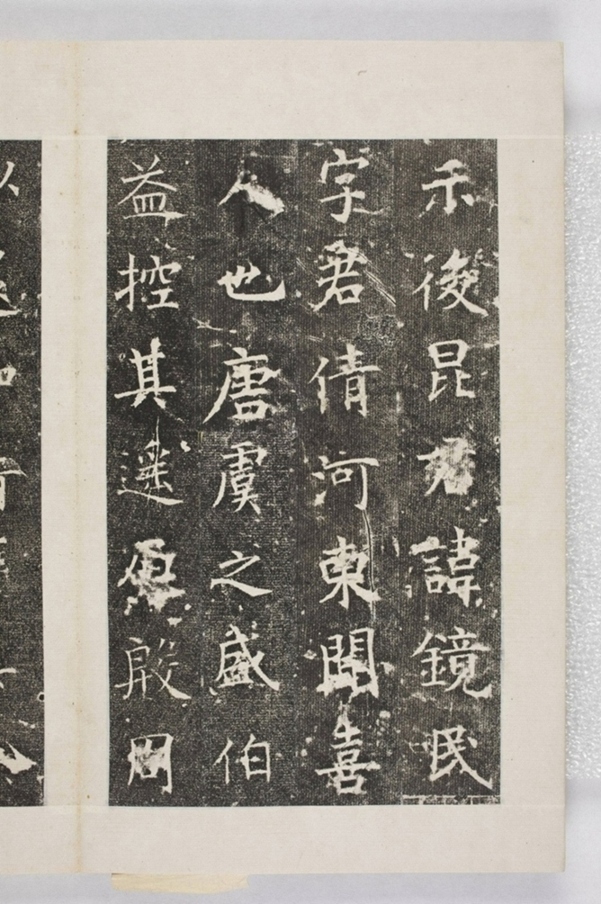 示後昆君諱鏡民
字君倩河東聞喜
人也唐虞之盛伯
益控其遥原殷周